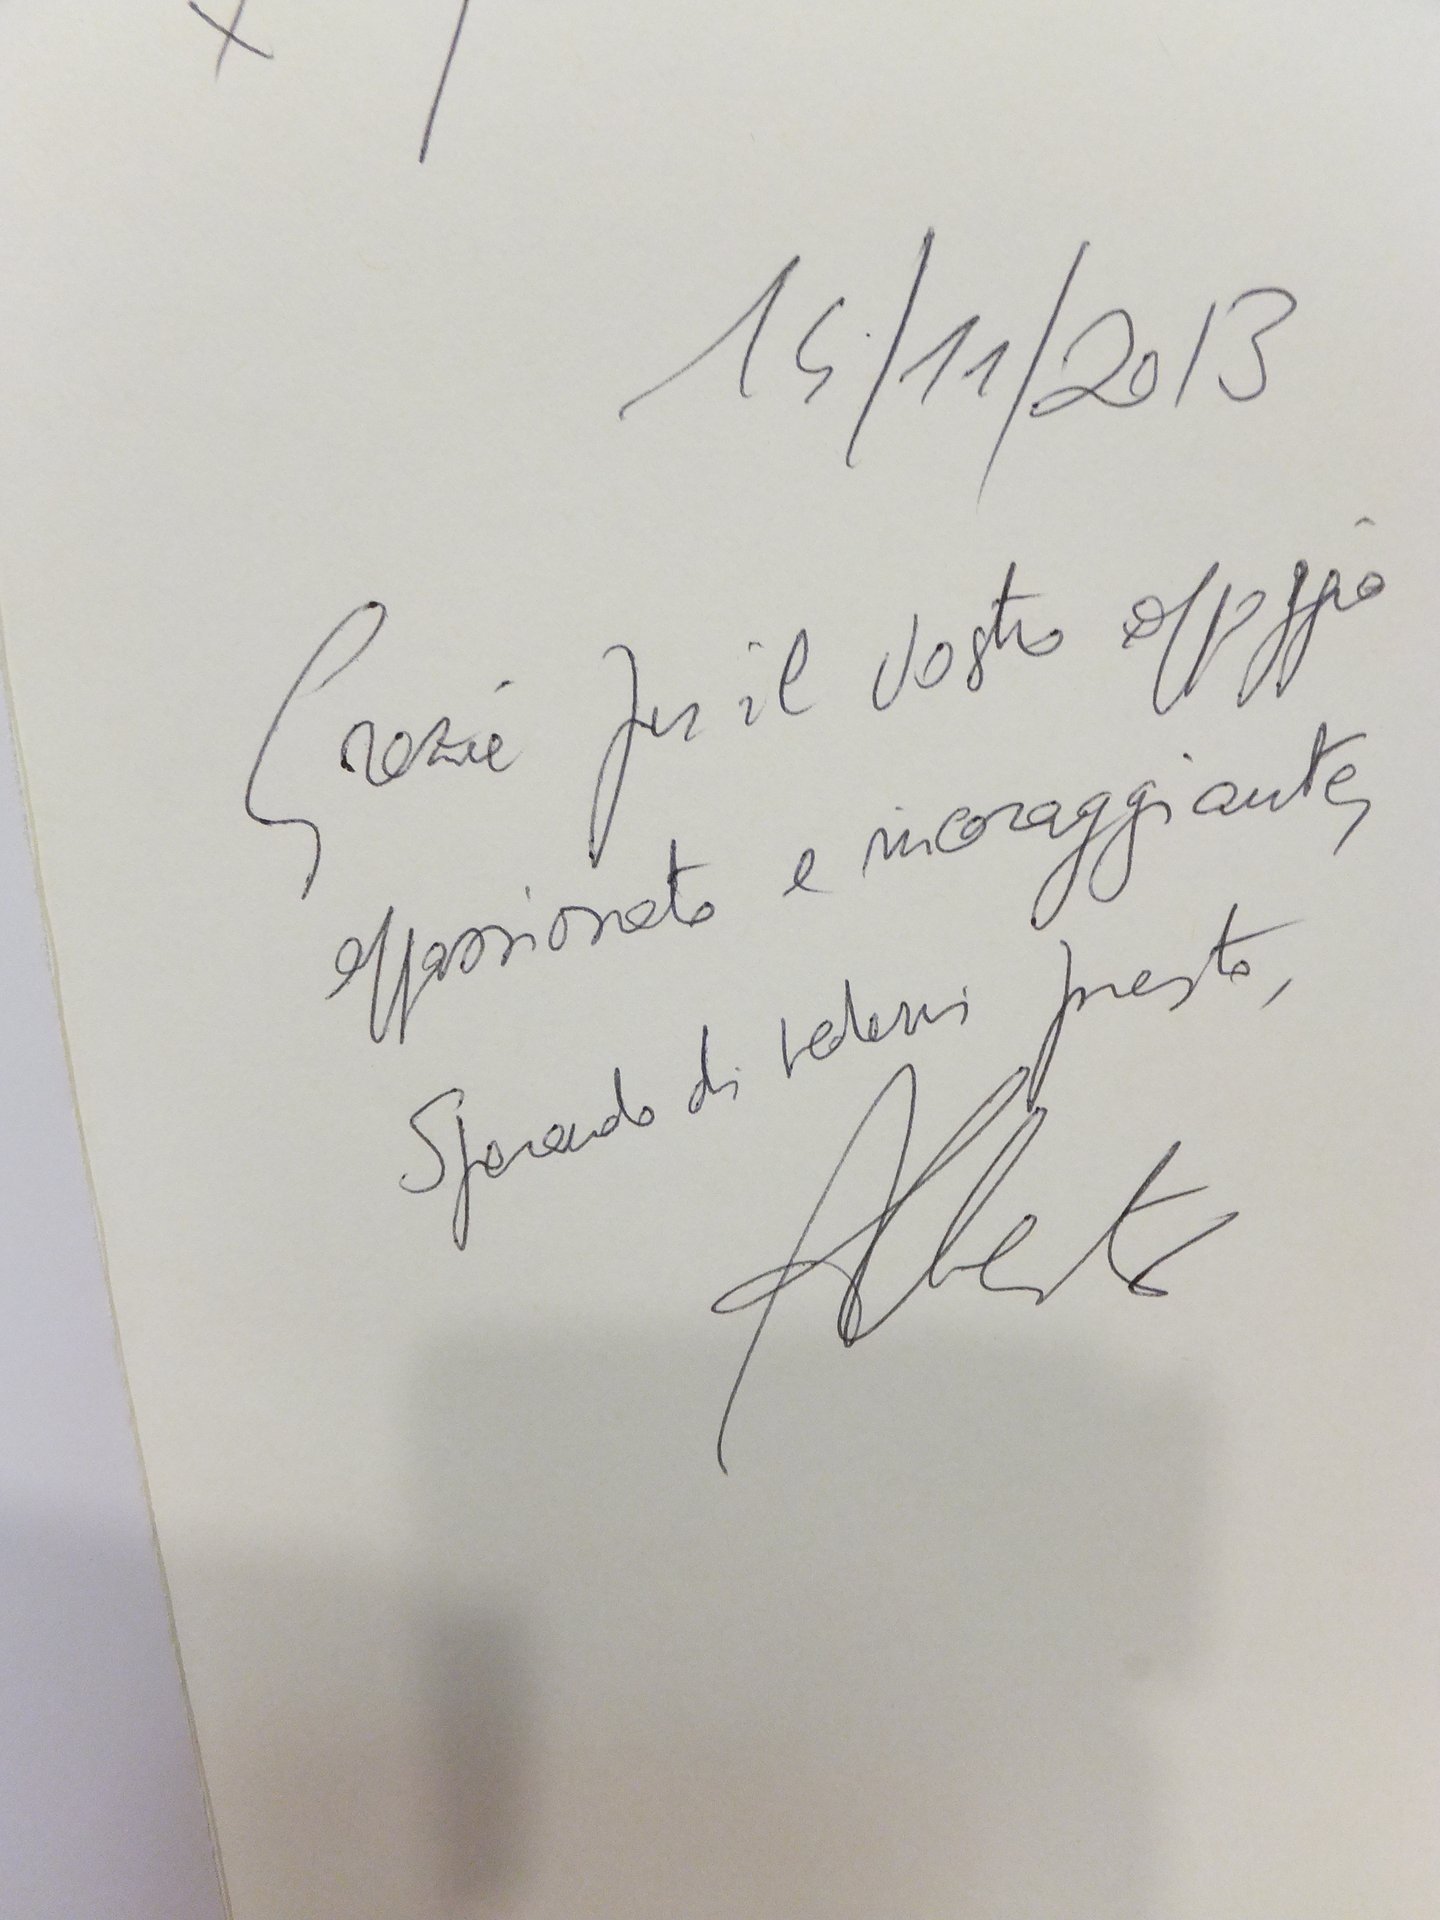 15/11/2013
Grazie per il vostro appoggio
appassionato e incoraggiante,
Sperando di vedervi presto,
Alberto